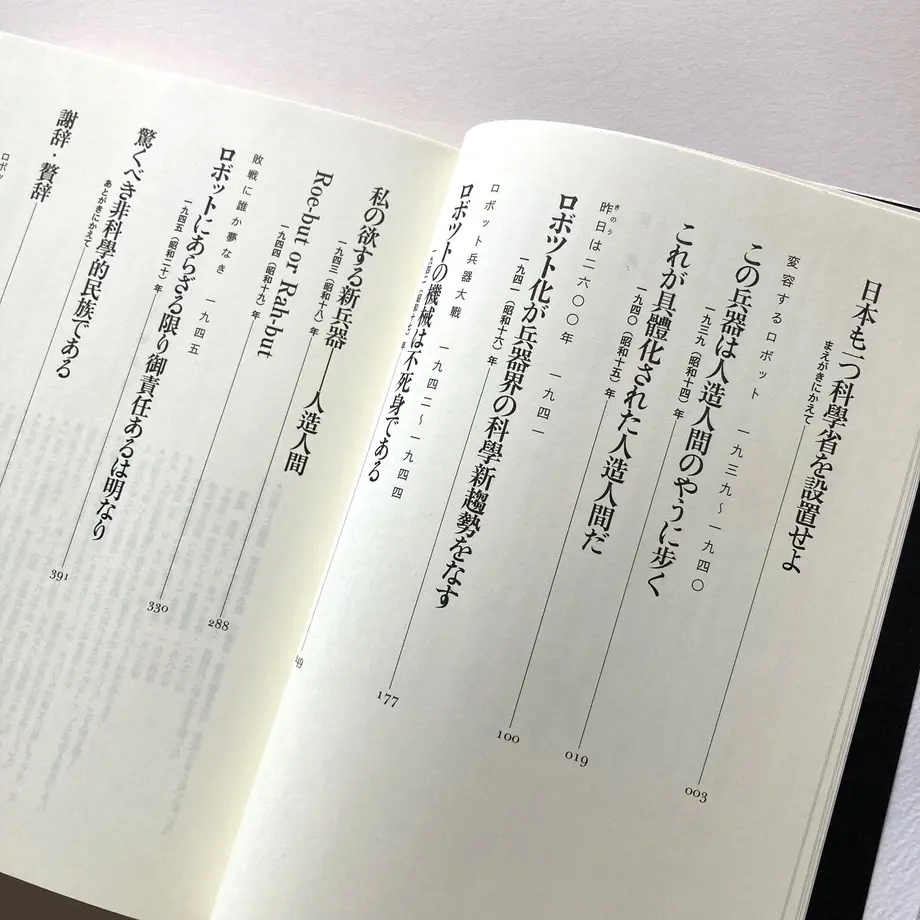 日本も一つ科學省を設置せよ
まえがきにかえて 003
変容するロボット 一九三九〜一九四〇
この兵器は人造人間のやうに歩く
一九三九(昭和十四)年 019
これが具體化された人造人間だ
一九四〇(昭和十五)年 100
きのう
昨日は二六〇〇年 一九四一
ロボツト化が兵器界の科學新趨勢をなす
一九四一(昭和十六)年 177
ロボット兵器大戦 一九四二〜一九四四
ロボツトの機械は不死身である
私の欲する新兵器——人造人間
一九四三(昭和十八)年
Roe-but or Rah-but
一九四四(昭和十九)年 288
敗戦に誰か夢なき 一九四五
ロボットにあらざる限り御責任あるは明なり
一九四五(昭和二十)年 330
驚くべき非科學的民族である
あとがきにかえて 391
謝辞・贅辞
ロボッ